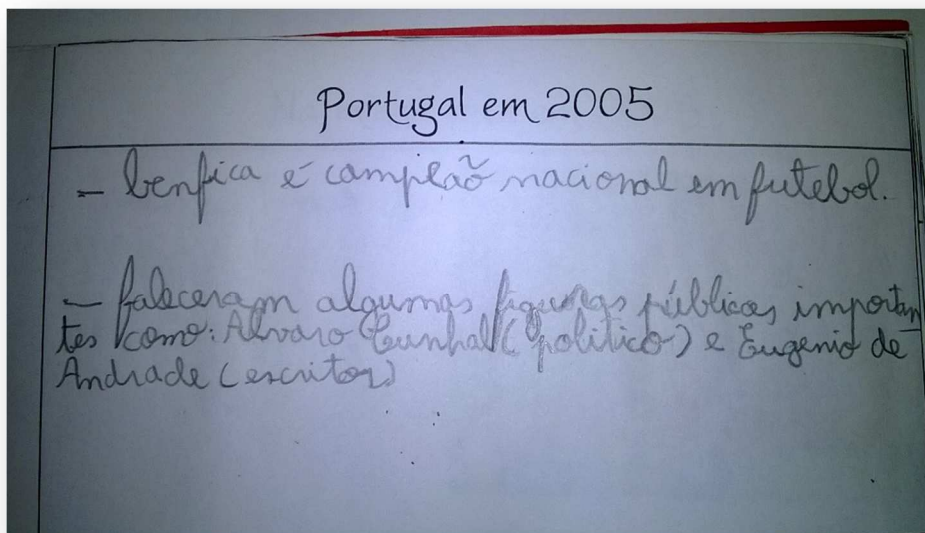 Portugal em 2005
- benfica é campeão nacional em futebol.
- faleceram algumas figuras públicas importan
tes como: Alvaro Cunhal (politico) e Eugenio de
Andrade (escritor)